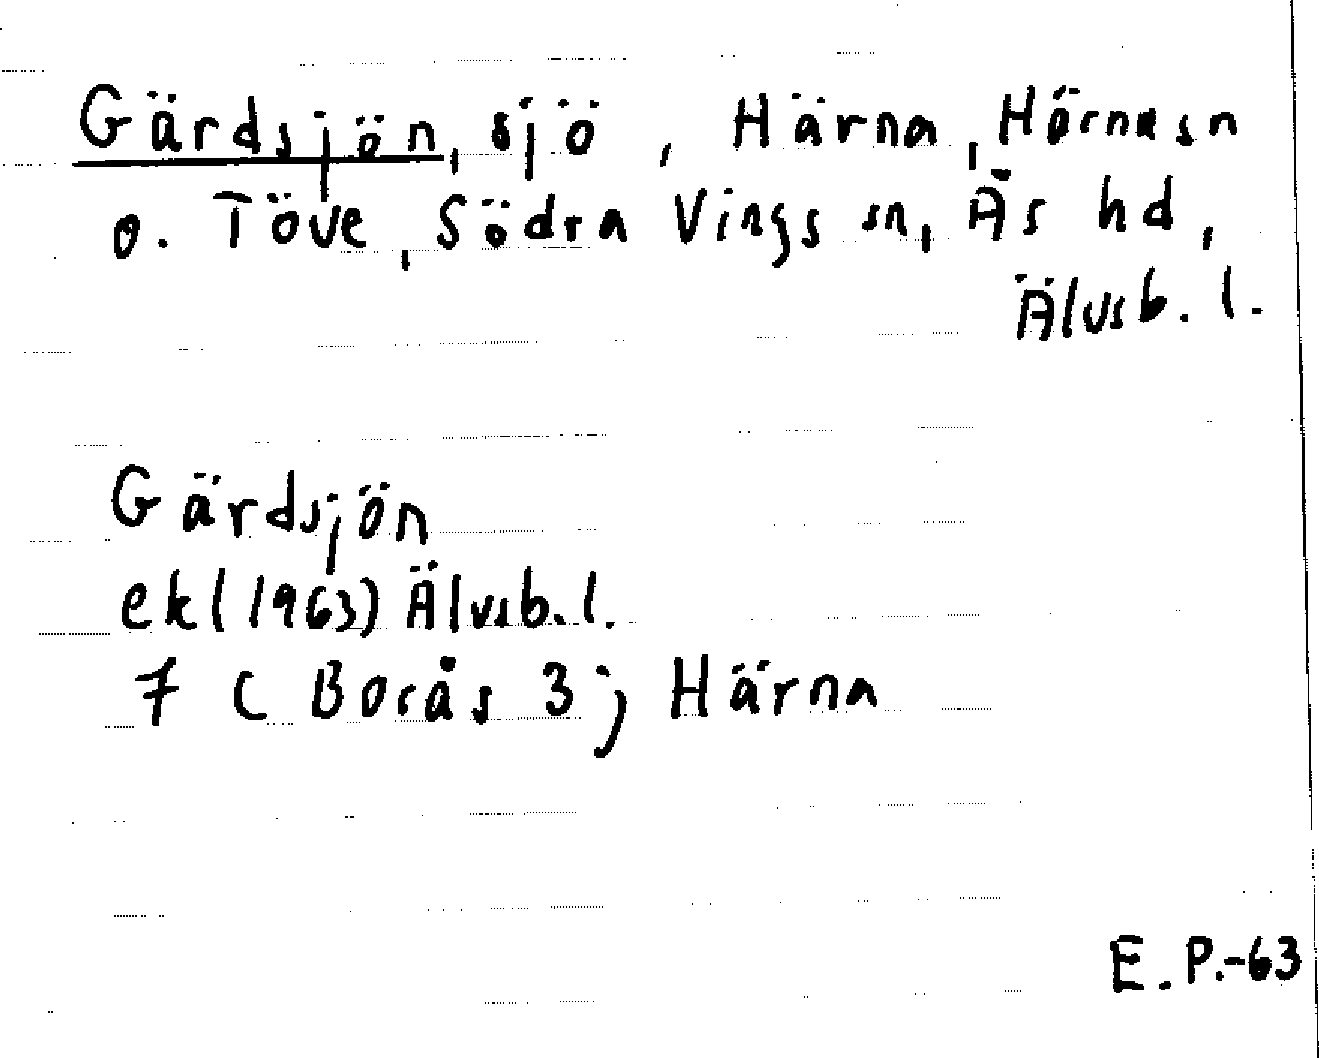 Gärdsjön, sjö, Härna, Härna sn
o. Töve, Södra Vings sn, Ås hd,
Älvsb. l.
Gärdsjön
ek (1963) Älvsb. l.
7 C Borås 3; Härna
E.P.-63